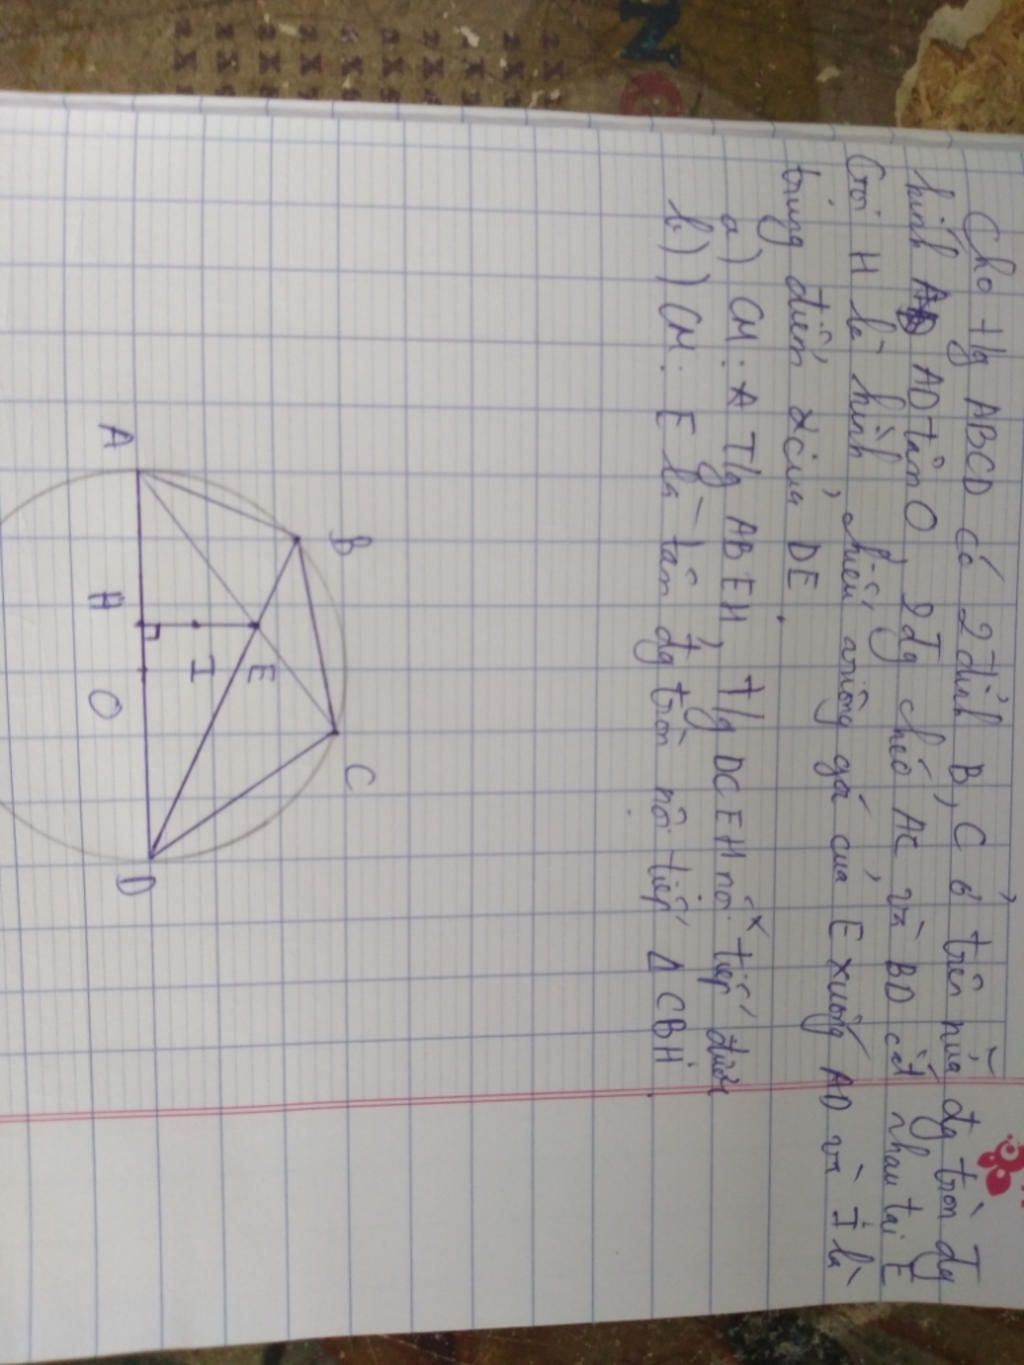 Cho t/g ABCD có 2 đỉnh B, C ở trên nửa đg tròn đg
kính AD tâm O, 2 đg chéo AC và BD cắt nhau tại E
Gọi H là hình chiếu vuông gá của E xuống AD và I là
trung điểm của DE.
a) CM: T/g ABEH, t/g DCEH nội tiếp được
b) CM: E là tâm đg tròn nội tiếp Δ CBH.
B
C
E
I
A
H
O
D